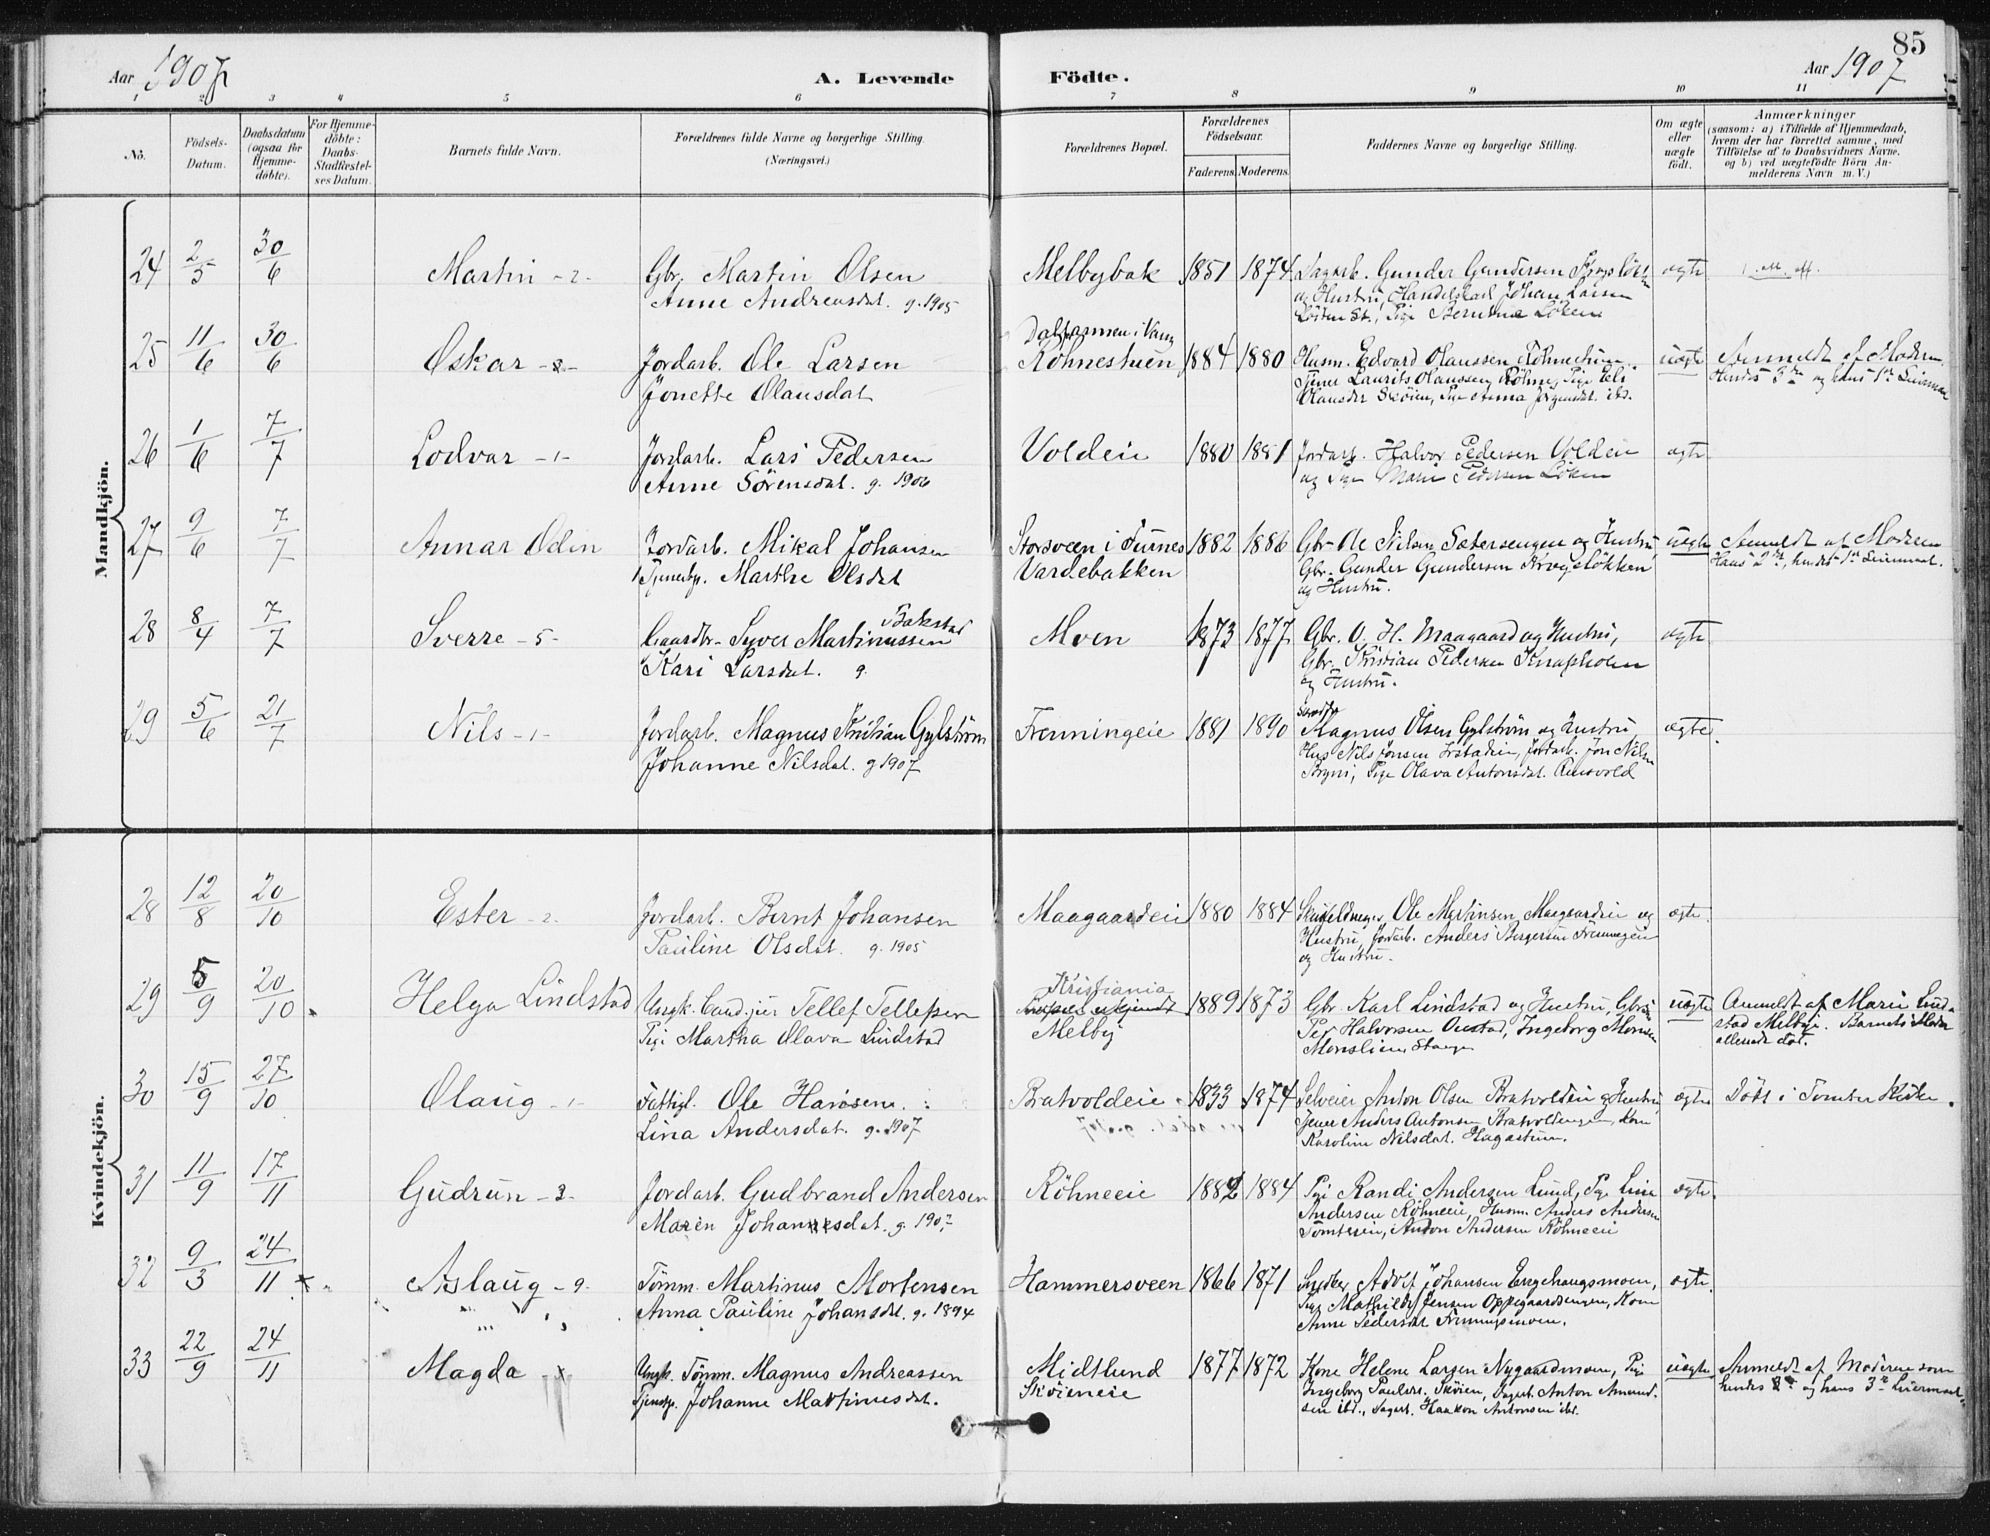 85
Aar 1907
A. Levende
Födte.
Aar 1907
1 2 3 4 5 6 7 8 9 10 11
No.
Födsels-Datum.
Daabsdatum (ogsaa for Hjemme-döbte).
For Hjemme-döbte: Daabs-Stadfæstel-ses Datum.
Barnets fulde Navn.
Forældrenes fulde Navne og borgerlige Stilling.
(Næringsvei.)
Forældrenes Bopæl.
Forældrenes Födselsaar.
Faderens. Moderens.
Faddernes Navne og borgerlige Stilling.
Om ægte eller uægte födt.
Anmærkninger
(saasom: a) i Tilfælde af Hjemmedaab,
hvem der har forrettet samme, med
Tilföielse af to Daabsvidners Navne.
og b) ved uægtefödte Börn An-
melderens Navn m. V.)
Mandkjön.
24 2/5 30/6 Martin - 2 - Gbr. Martin Olsen Melbybak 1851 1874 Gunder Gundersen ægte
Anne Andreasdat. g. 1905 og Hustru, Johan Larsen
Löken
25 11/6 30/6 Oskar Jordarb. Ole Larsen i Vang Röhnestuen 1884 1880 Husm. Edvard Olaussen Röhnestuen uægte Anmeldt af Moderen
Jonette Olausdat Laurits Olaussen Röhne, Pige
Skøien, Pige Anna ibd.
26 1/6 7/7 Lodvar - 1 - Jordarb. Lars Pedersen Voldeie 1880 1881 Jordarb. Halvor Pedersen Voldeie ægte
Anne Sörensdat. g. 1906 og Pige Marie Pedersen Löken
27 9/6 7/7 Annar Odin Jordarb. Mikal Johansen Storsveen i Furnes 1882 1886 Gbr. Ole Nilsen Sætersengen og Hustru, uægte Anmeldt af Moderen
Tjenestp. Marthe Olsdat Vardebakken Gbr. Gunder Gundersen
Hans 2den, hendes 1ste Leiermaal.
og Hustru.
28 8/4 7/7 Sverre - 5 - Gaardbr. Syver Martinussen Bakstad Moen 1873 1877 Gbr. O. H. Maagaard og Hustru, ægte
Kari Larsdat. g. Gbr. Kristian Pedersen
og Hustru.
29 5/6 21/7 Nils - 1 - Jordarb. Magnus Kristian Gylström Frenningeie 1881 1890 Magnus Olsen Gylström og Hustru ægte.
Johanne Nilsdat. g 1907 Nils Jonsen Jordarb. Jon Nilsen
Pige Olava Antonsdat.
Kvindekjön.
28 12/8 20/10 Ester - 2 - Jordarb. Bernt Johansen Maagaardeie 1880 1884 Ole Martinsen Maagaardeie og ægte.
Pauline Olsdat. g. 1905 Hustru, Jordarb. Anders Bergersen
og Hustru.
29 5/9 20/10 Helga Lindstad Ungk. Cand. jur Tellef Tellefsen Kristiania 1889 1873 Gbr. Karl Lindstad og Hustru, uægte Anmeldt af Marie Lind-
Pige Martha Olava Lindstad Melby Per Halvorsen Ingeborg
stad Melby. Barnets Moder
allerede död.
Stange
30 15/9 27/10 Olaug - 1 - Fattigl. Ole Hansen Bratvoldeie 1833 1874 Selveier Anton Olsen Bratvoldeie og Hustru, ægte Döbt i Tomter Kirke.
Lina Andersdat. g. 1907 Anders Antonsen Kone
Karoline Nilsdat.
31 11/9 17/11 Gudrun - 3 - Jordarb. Gudbrand Andersen Röhneeie 1882 1884 Pige Randi Andersen Lund, Pige Line ægte.
Maren Johannesdat. g. 1907 Andersen Röhneeie, Husm. Anders Andersen
Anton Andersen Röhneeie
32 9/3 24/11 Aslaug - 9 - Tömm. Martinus Mortensen Hammersveen 1866 1871 Snedker Adolf Johansen Engehaugsmoen, ægte.
Anna Pauline Johansdat. g. 1894 Pige Mathilde Jensen Oppegaardsengen, Kone
Anne Pedersdat
33 22/9 24/11 Magda Ungk. Tömm. Magnus Andreassen Midtlund 1877 1872 Kone Helene Larsen Nygaardmoen, Pige uægte. Anmeldt af Moderen som
Tjenestp. Johanne Martinusdat. Skøieneie Ingeborg Skøien, Anton Amund-
hendes og hans 3die Leiermaal
sen ibd., Haakon Antonsen ibd.